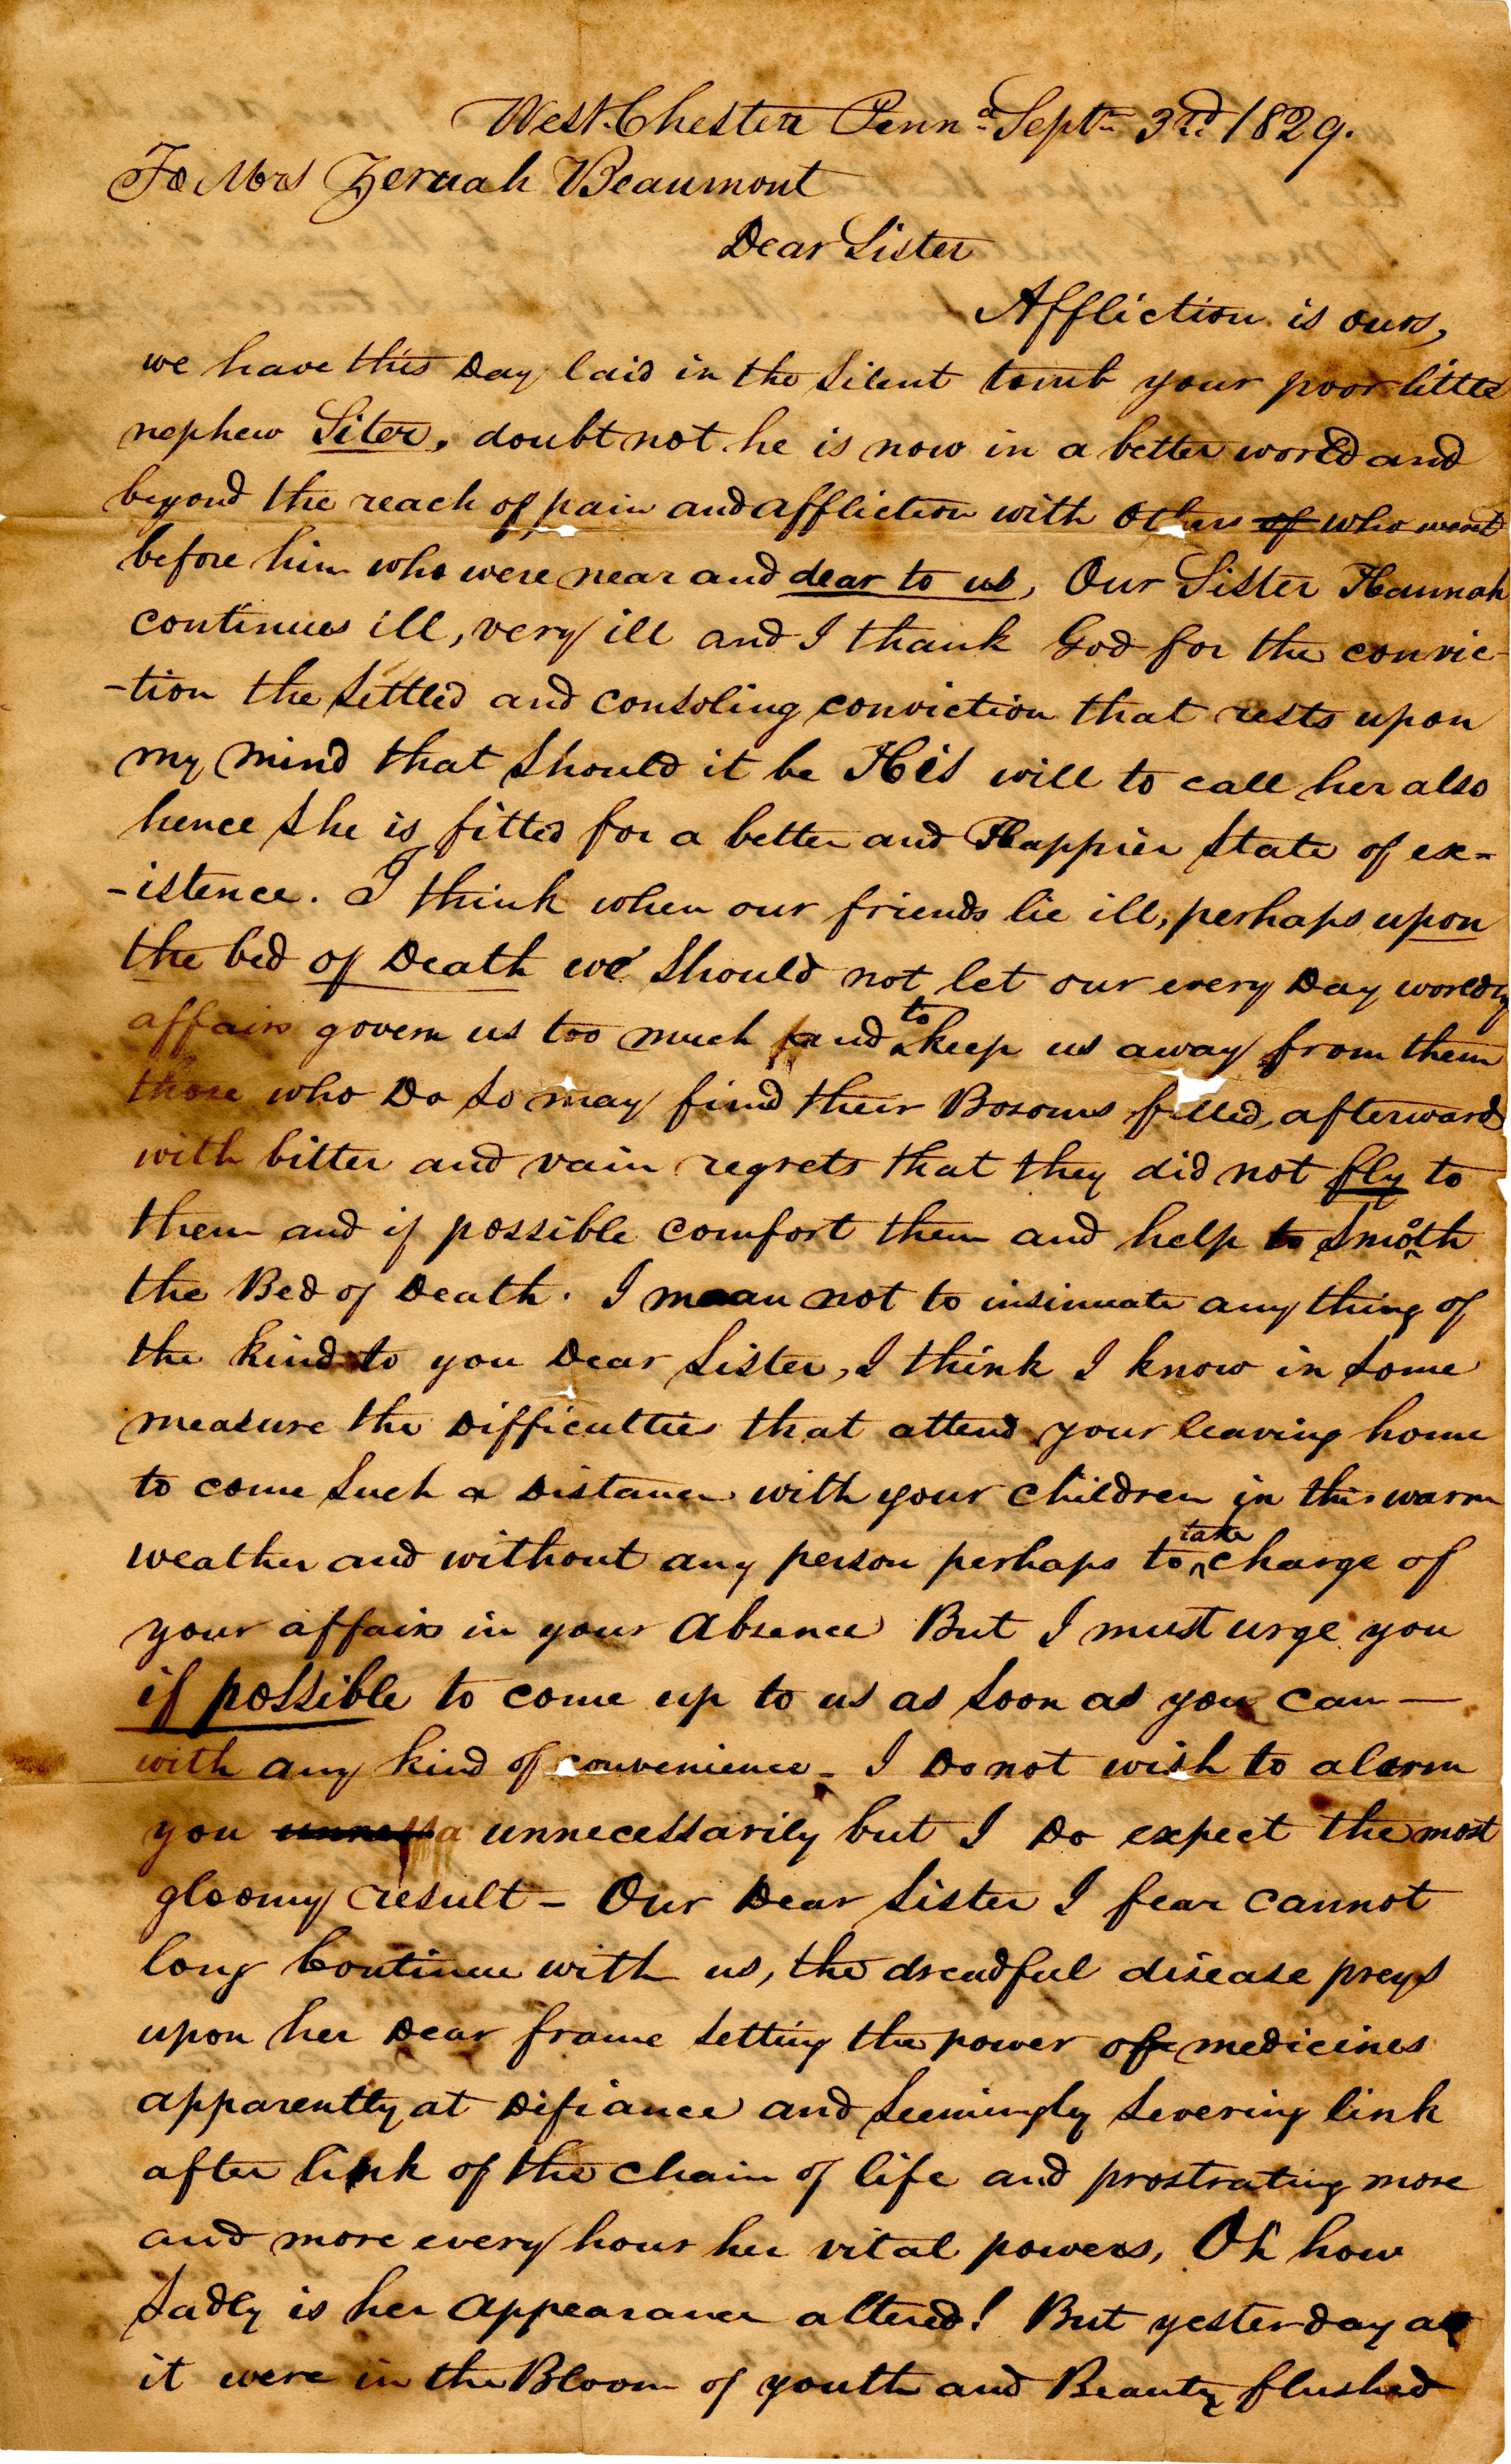 West-Chester Penna Septr 3rd 1829.
To Mrs Zeruah Beaumont
Dear Sister
Affliction is ours,
we have this Day laid in the Silent tomb your poor little
nephew Siter, doubt not he is now in a better world and
beyond the reach of pain and affliction with others of who went
before him who were near and dear to us, Our Sister Hannah
continues ill, very ill and I thank God for the convic-
-tion the Settled and consoling conviction that rests upon
my mind that Should it be His will to call her also
hence She is fitted for a better and Happier State of ex-
-istence. I think when our friends lie ill, perhaps upon
the bed of Death we Should not let our every Day worldly
affairs govern us too much and to keep us away from them
those who Do So may find their Bosoms filled, afterwards
with bitter and vain regrets that they did not fly to
them and if possible comfort them and help to Smooth
the Bed of Death. I mean not to insinuate any thing of
the kind to you Dear Sister, I think I know in Some
measure the Difficulties that attend your leaving home
to come Such a Distance with your children in this warm
weather and without any person perhaps to take charge of
your affairs in your absence But I must urge you
if possible to come up to us as Soon as you can —
with any kind of convenience - I Do not wish to alarm
you unnessa unnecessarily but I Do expect the most
gloomy result - Our Dear Sister I fear cannot
long Continue with us, the dreadful disease preys
upon her Dear frame Setting the power of medicines
apparently at Difiance and Seemingly Severing link
after link of the chain of life and prostrating more
and more every hour her vital powers, Oh how
Sadly is her appearance altered! But yesterday as
it were in the Bloom of youth and Beauty flushed